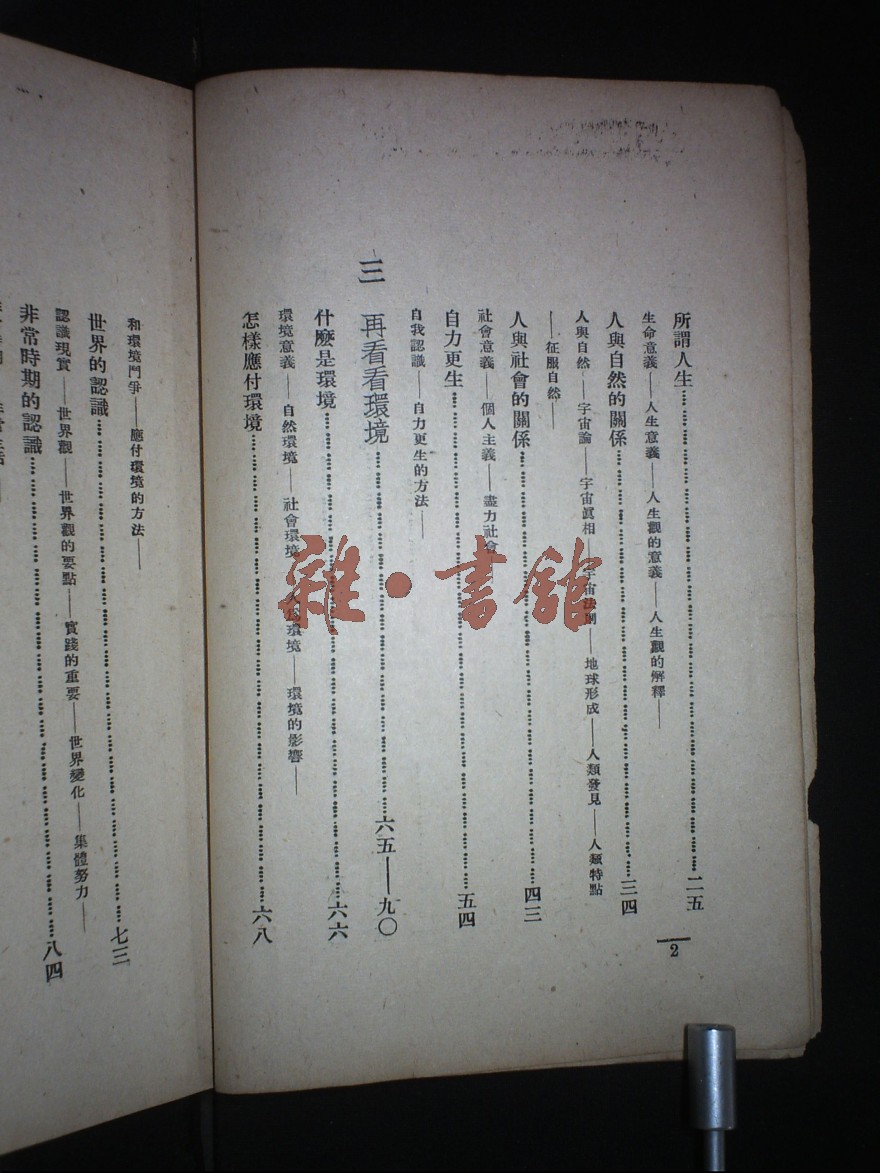 所謂人生……二五
生命意義——人生意義——人生觀的意義——人生觀的解釋——
人與自然的關係……三四
人與自然——宇宙論——宇宙眞相——宇宙法則——地球形成——人類發見——人類特點
——征服自然——
人與社會的關係……四三
社會意義——個人主義——盡力社會
自力更生……五四
自我認識——自力更生的方法——
三 再看看環境……六五——九〇
什麼是環境……六六
環境意義——自然環境——社會環境——人爲環境——環境的影響——
怎樣應付環境……六八
2
和環境鬥爭——應付環境的方法——
世界的認識……七三
認識現實——世界觀——世界觀的要點——實踐的重要——世界變化——集體努力——
非常時期的認識……八四
雜·書館